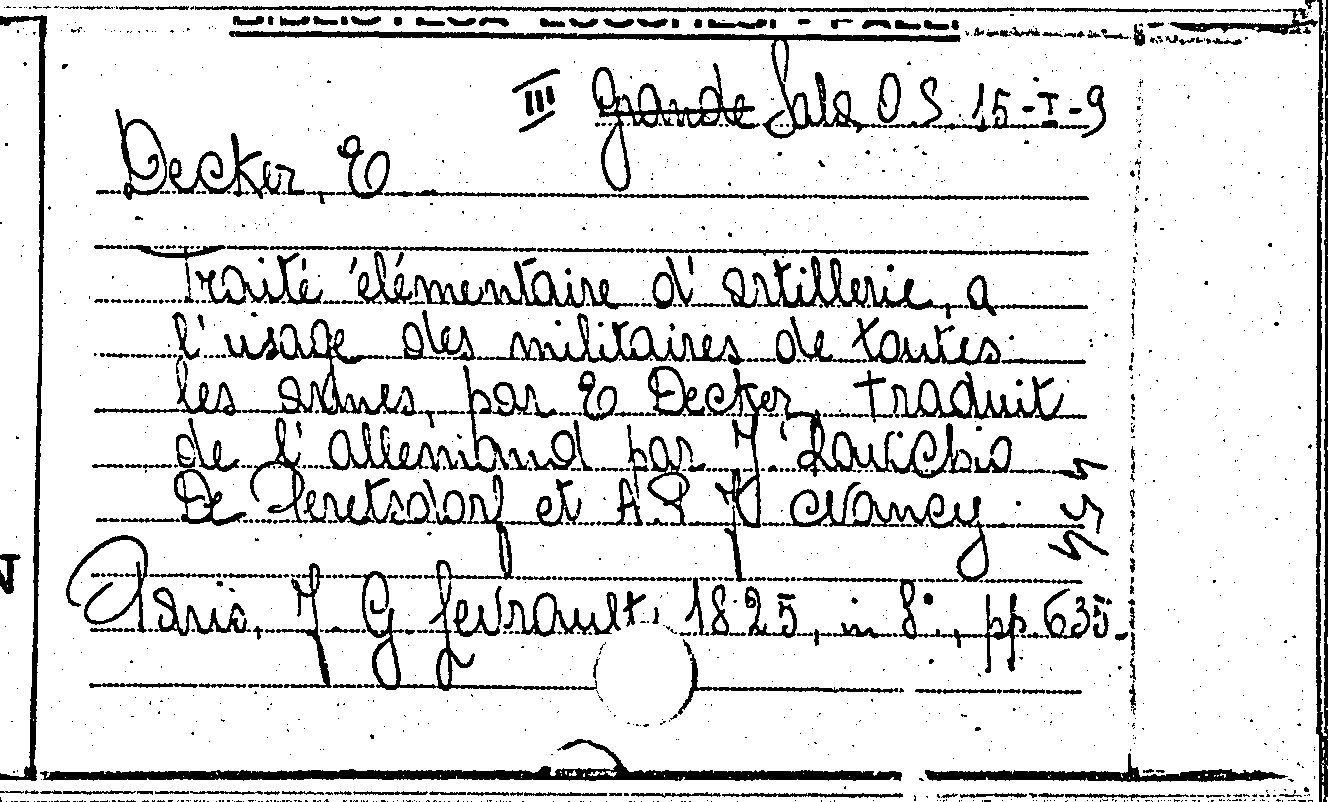 III Grande Sala O.S. 15-I-9
Decker, E.
Traité élémentaire d'artillerie, a
l'usage des militaires de toutes
les armes, par E Decker, traduit
de l'allemand par J. Ravichio
De Peretsdorf et A.P F Nancy
Paris, F. G Levrault, 1825, in 8°., pp. 635.